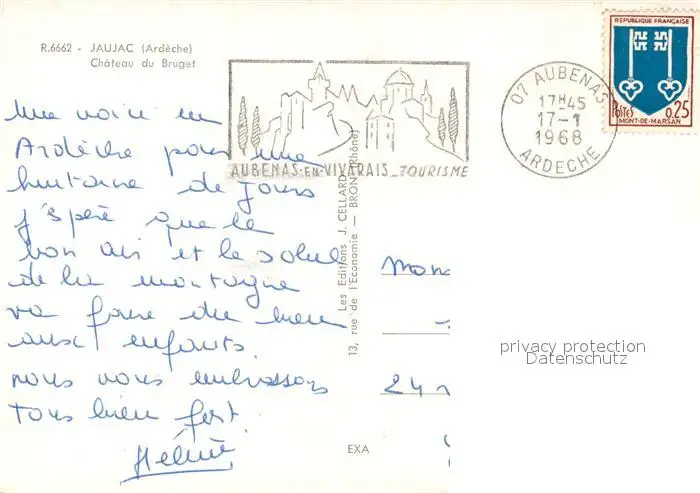 R.6662 - JAUJAC (Ardèche)
Château du Bruget
me voici en
Ardèche pour une
huitaine de jours
j'espère que le
bon air et le soleil
de la montagne
va faire du bien
aux enfants.
nous vous embrassons
tous bien fort.
Hélène
AUBENAS-EN-VIVARAIS_TOURISME
07 AUBENAS
17H45
17-1
1968
ARDECHE
REPUBLIQUE FRANÇAISE
POSTES 0,25
MONT-DE-MARSAN
Les Editions J. CELLARD
13, rue de l'Economie — BRON (Rhône)
EXA
Mon
24
privacy protection
Datenschutz